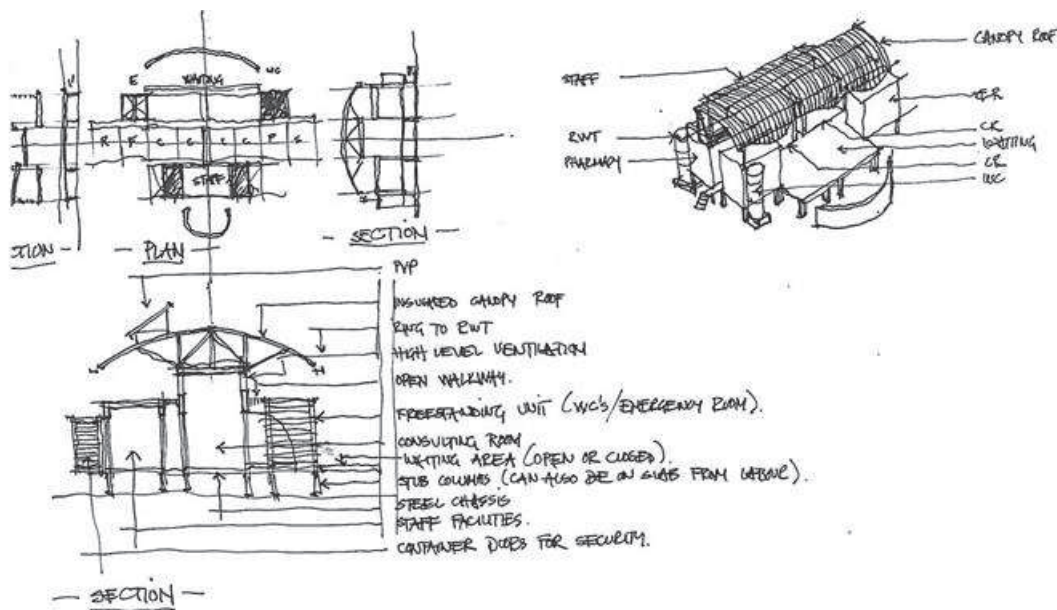 E
WAITING
WC
R P C C C C P E
STAFF
TION
PLAN
SECTION
CANOPY ROOF
STAFF
ER
RWT
CR
WAITING
PHARMACY
CR
WC
PVP
INSULATED CANOPY ROOF
RWG TO RWT
HIGH LEVEL VENTILATION
OPEN WALKWAY.
FREESTANDING UNIT (WC'S/EMERGENCY ROOM).
CONSULTING ROOM
WAITING AREA (OPEN OR CLOSED).
STUB COLUMNS (CAN ALSO BE ON SLAB FROM LABOUR).
STEEL CHASSIS
STAFF FACILITIES.
CONTAINER DOORS FOR SECURITY.
SECTION